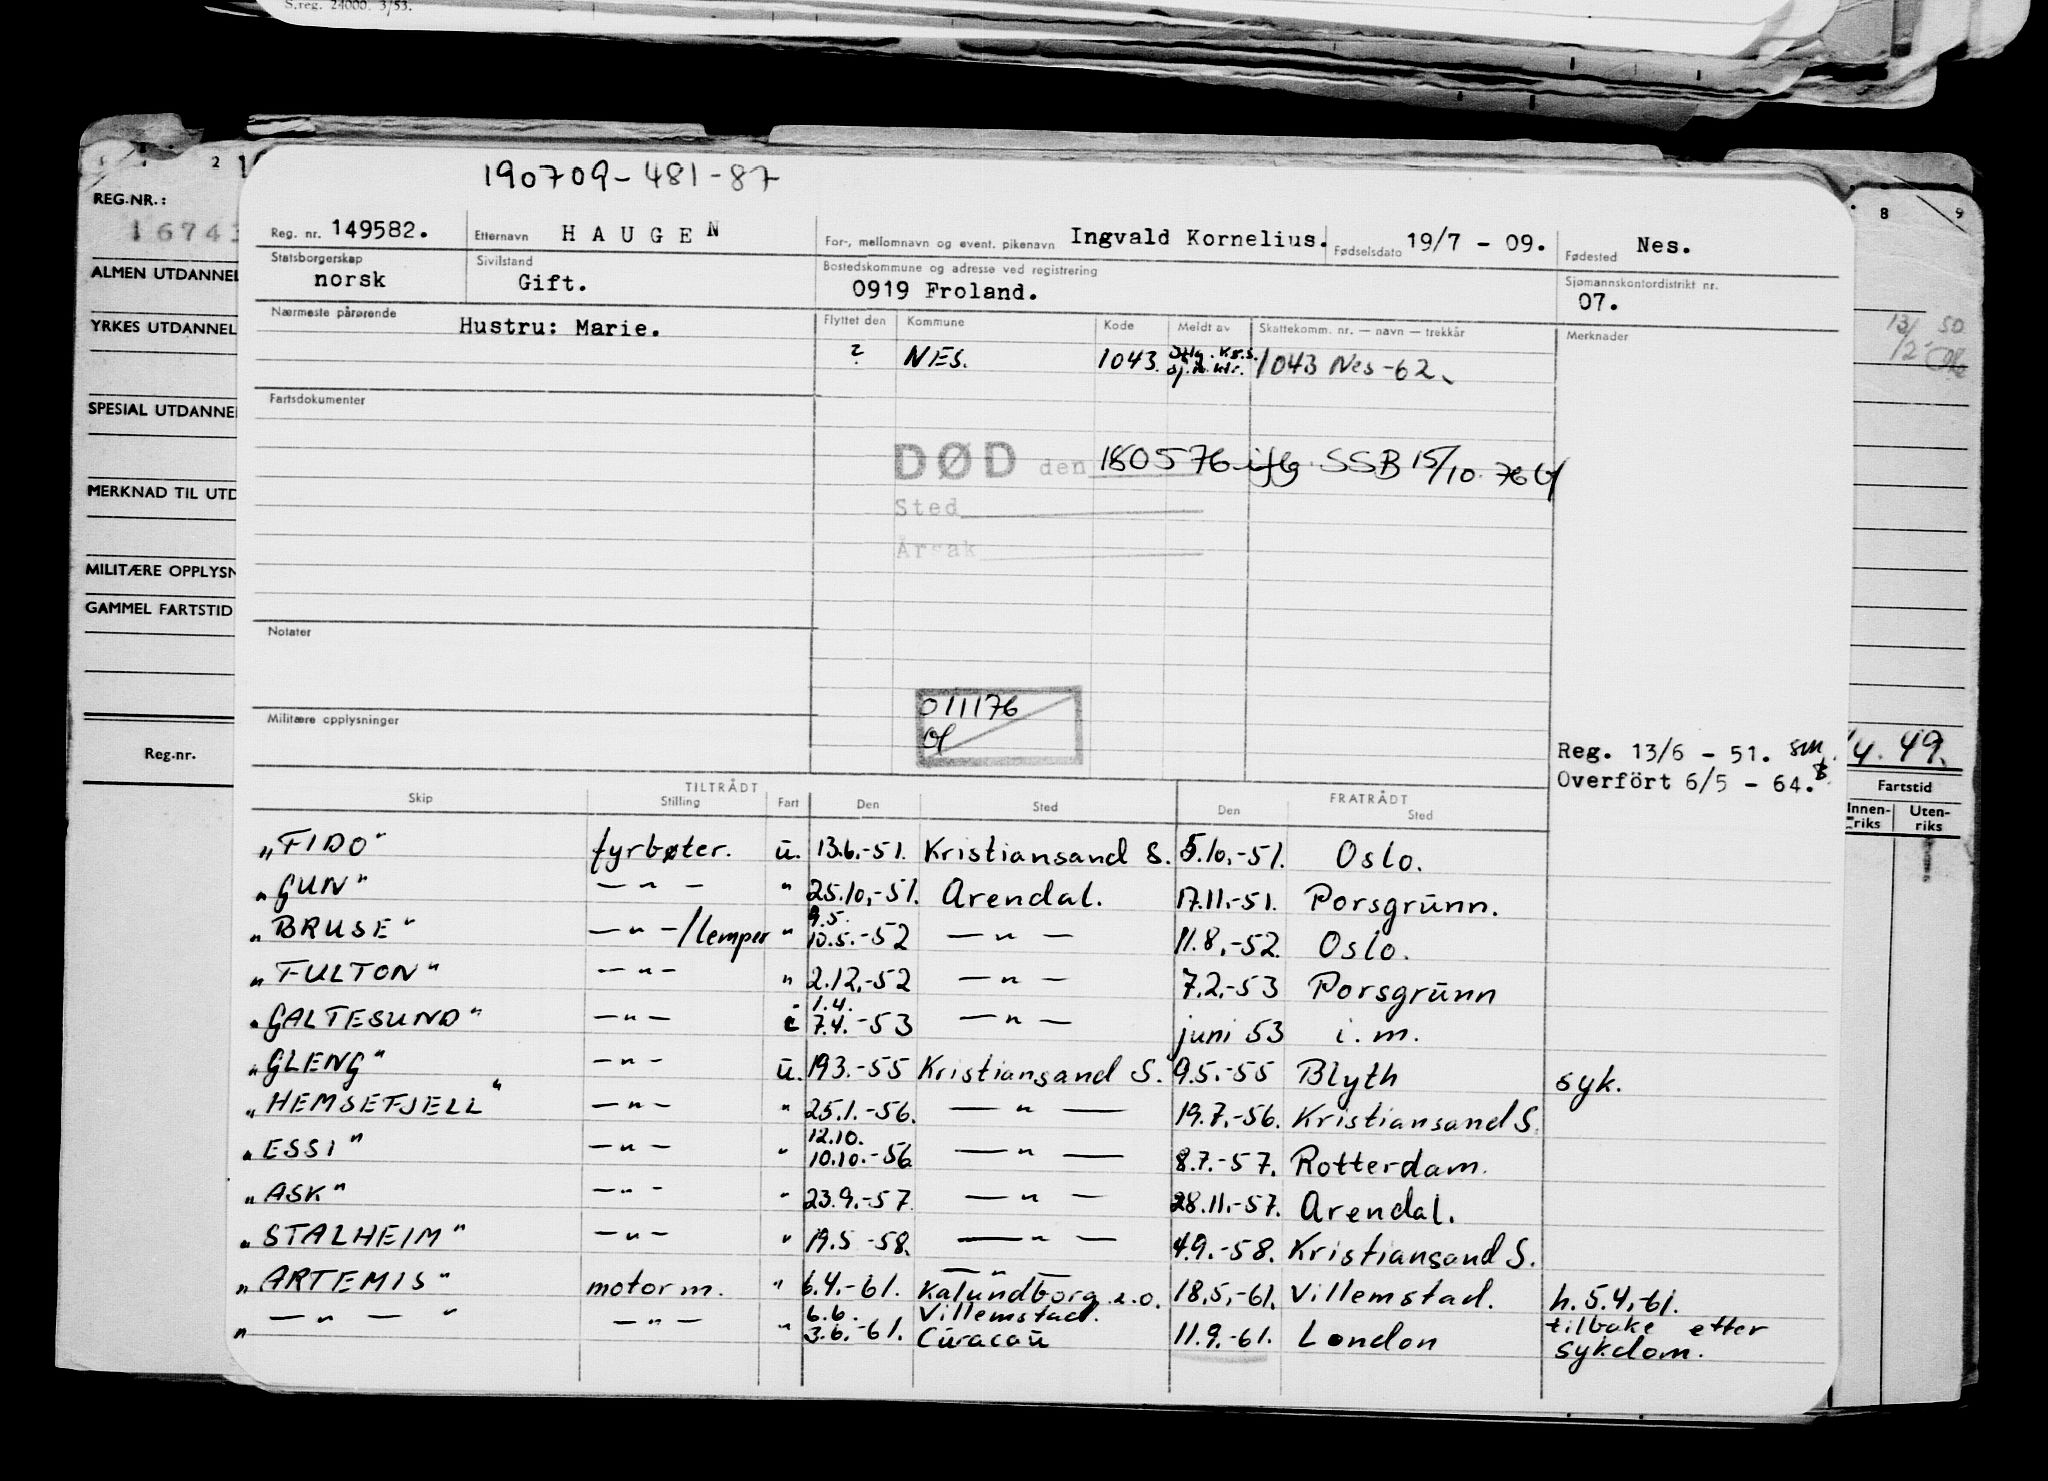 S.reg. 24000. 3/53.
2
8 9
REG.NR.:
ALMEN UTDANNEL
YRKES UTDANNEL
SPESIAL UTDANNE
MERKNAD TIL UTD
MILITÆRE OPPLYSN
GAMMEL FARTSTID
Reg.nr.
13/2 50
4. 49.
Fartstid
Innenriks Utenriks
190709-481-87
Reg. nr. 149582. Etternavn HAUGEN For-, mellomnavn og event. pikenavn Ingvald Kornelius. Fødselsdato 19/7 - 09. Fødested Nes.
Statsborgerskap norsk Sivilstand Gift. Bostedskommune og adresse ved registrering 0919 Froland. Sjømannskontordistrikt nr. 07.
Nærmeste pårørende Hustru: Marie. Flyttet den Kommune Kode Meldt av Skattekomm. nr. — navn — trekkår Merknader
? NES. 1043. 1043 Nes-62.
Fartsdokumenter
DØD den 180576 iflg. SSB 15/10.76
Sted
Årsak
Notater
011176
Militære opplysninger
Reg. 13/6 - 51.
Overfört 6/5 - 64.
TILTRÅDT FRATRÅDT
Skip Stilling Fart Den Sted Den Sted
"FIDO" fyrbøter. u. 13.6.-51. Kristiansand S. 5.10.-51. Oslo.
"GUN" — " — " 25.10.-51. Arendal. 17.11.-51. Porsgrunn.
"BRUSE" — " — /lemper " 9.5. 10.5.-52 — " — 11.8.-52. Oslo.
"FULTON" — " — " 2.12.-52 — " — 7.2.-53 Porsgrunn
"GALTESUND" — " — i 1.4. 7.4.-53 — " — juni 53 i.m.
"GLENG" — " — u. 19.3.-55 Kristiansand S. 9.5.-55 Blyth syk.
"HEMSEFJELL" — " — " 25.1.-56. — " — 19.7.-56. Kristiansand S.
"ESSI" — " — " 12.10. 10.10.-56 — " — 8.7.-57. Rotterdam.
"ASK" — " — " 23.9.-57. — " — 28.11.-57. Arendal.
"STALHEIM" — " — " 19.5-58. — " — 4.9.-58. Kristiansand S.
"ARTEMIS" motorm. " 6.4.-61. — " — Kalundborg 2.0. 18.5.-61. Villemstad. h. 5.4.-61.
" — — — " — " — " 6.6. 3.6.-61. Villemstad. Curacau 11.9.-61. London tilbake etter sykdom.